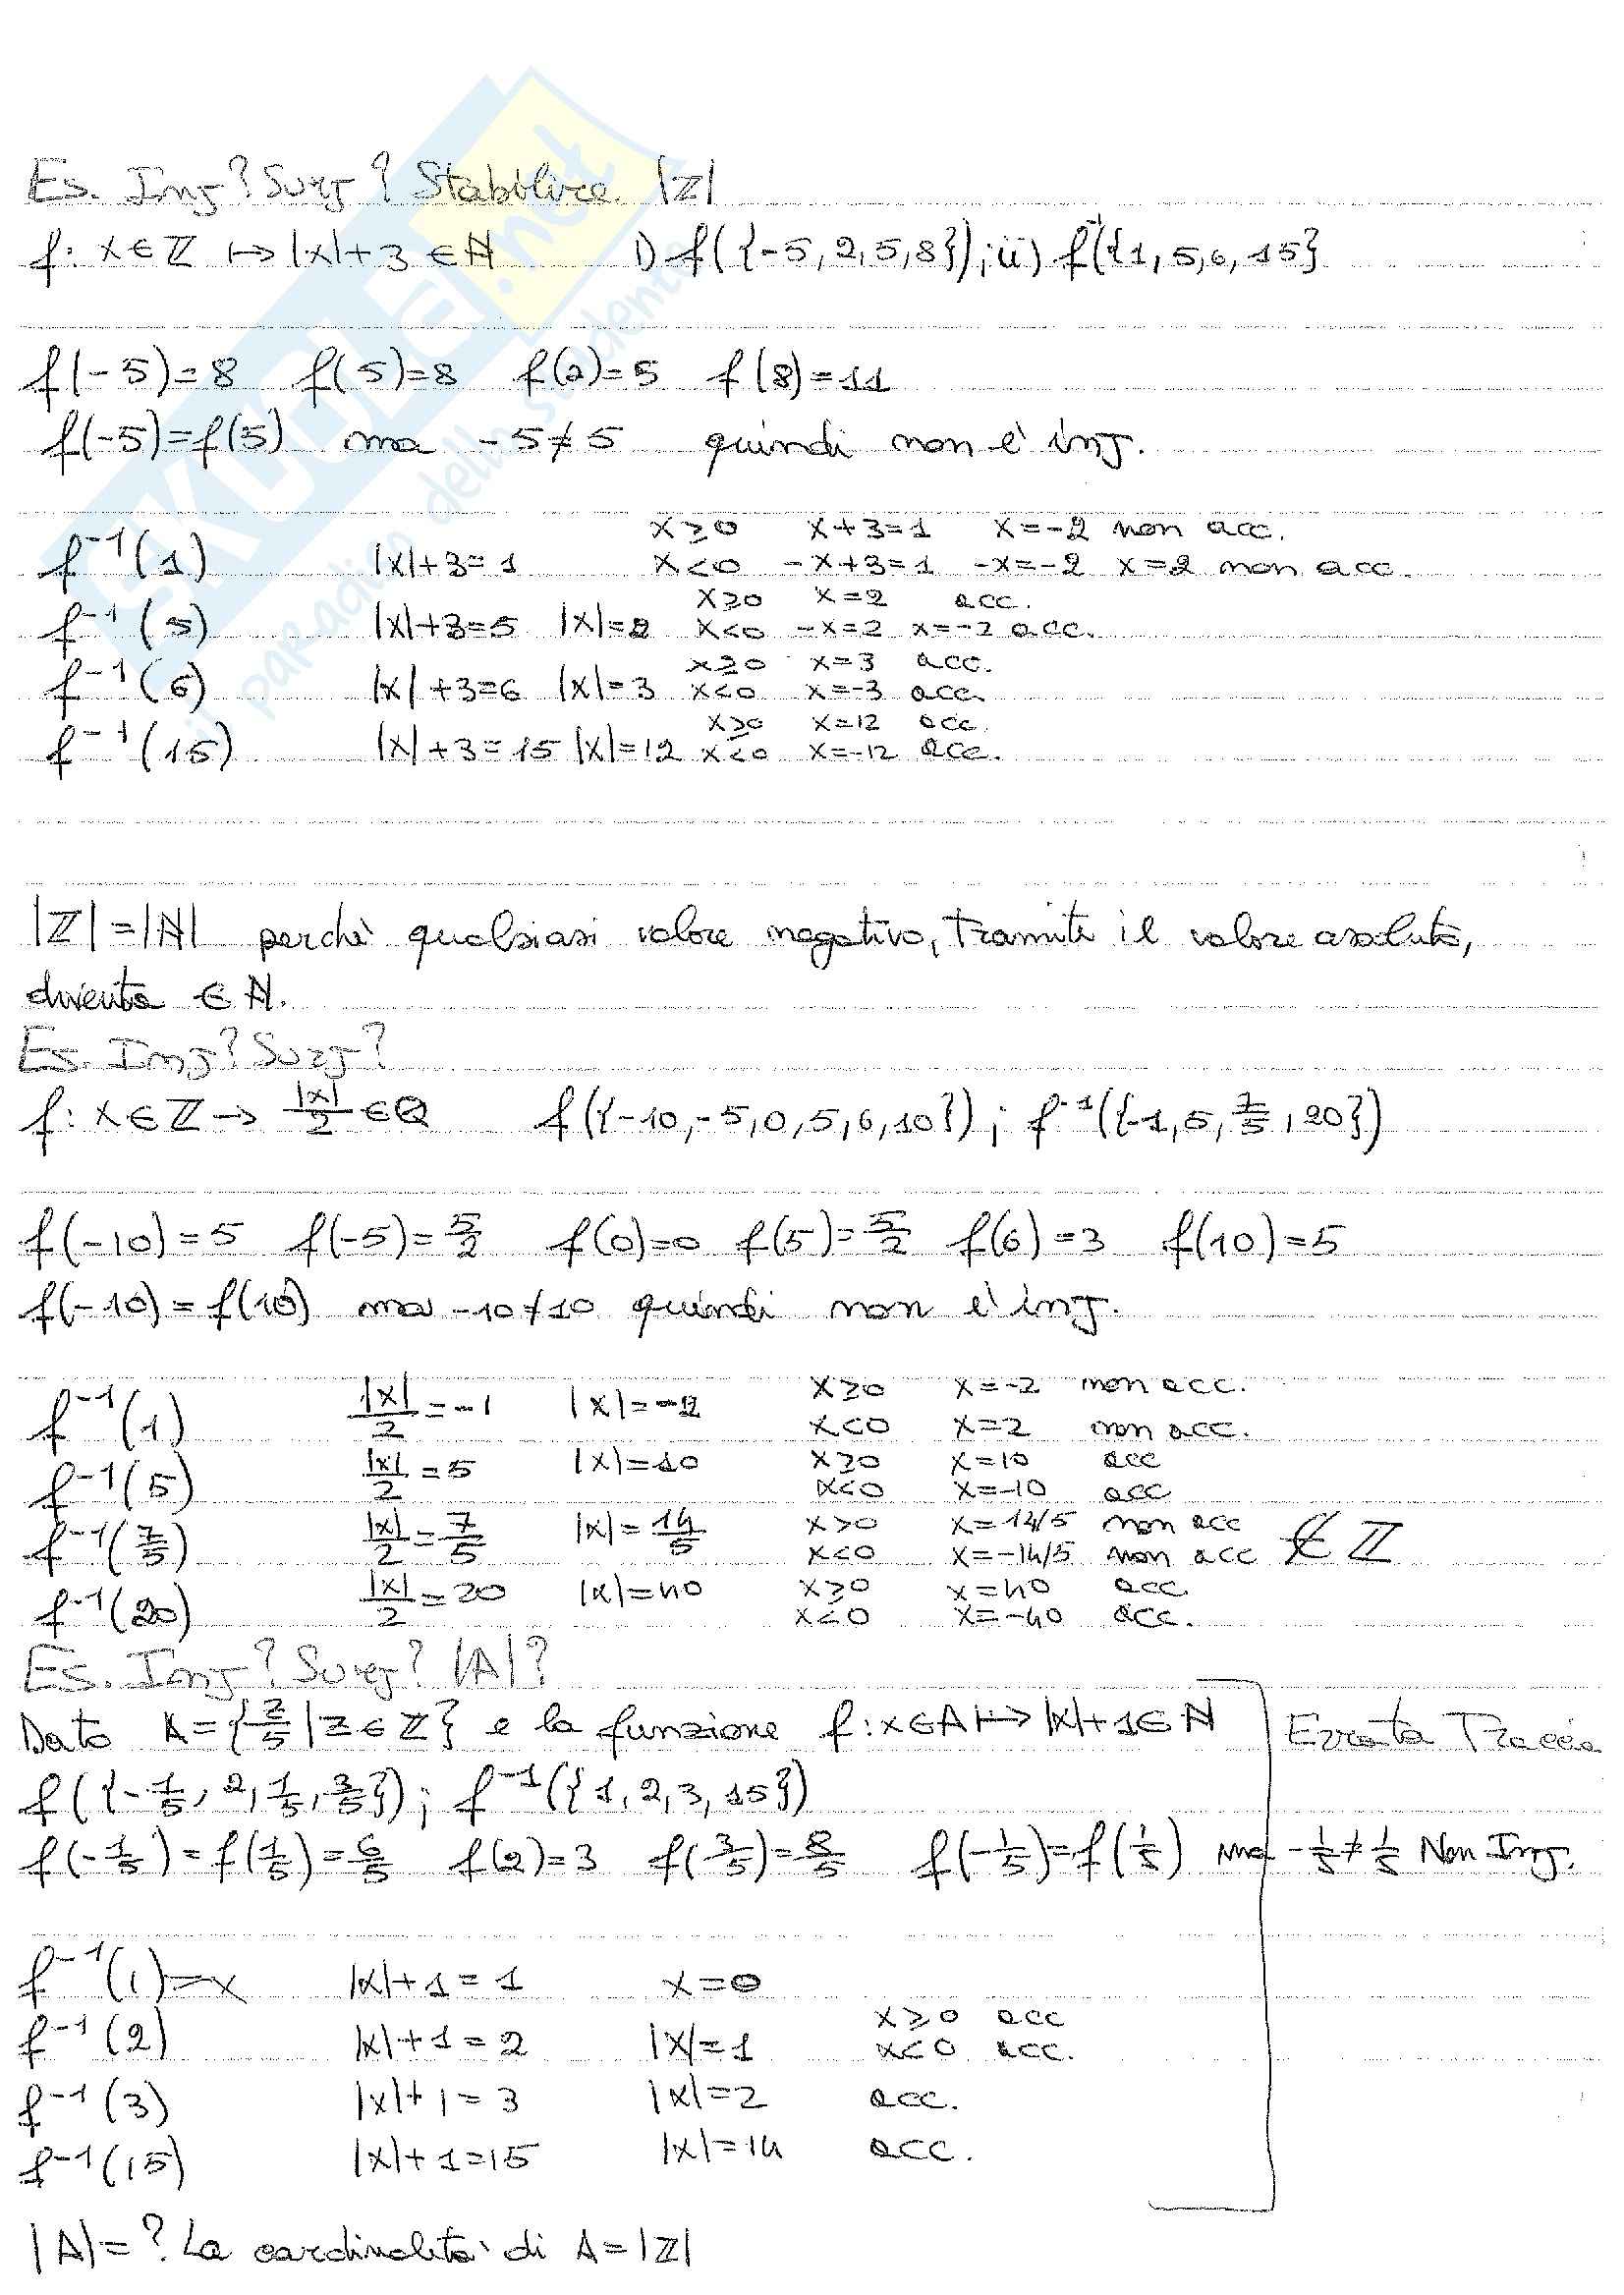 Es. Inj? Surj? Stabilire |ℤ|
f: x∈ℤ ↦ |x|+3 ∈ℕ    i) f({-5,2,5,8}); ii) f⁻¹({1,5,6,15}
f(-5)=8   f(5)=8   f(2)=5   f(8)=11
f(-5)=f(5)   ma   -5≠5   quindi non è inj.
x≥0   x+3=1   x=-2 non acc.
f⁻¹(1)   |x|+3=1   x<0   -x+3=1   -x=-2   x=2 non acc.
x≥0   x=2   acc.
f⁻¹(5)   |x|+3=5   |x|=2   x<0   -x=2   x=-2 acc.
x≥0   x=3   acc.
f⁻¹(6)   |x|+3=6   |x|=3   x<0   x=-3   acc.
x≥0   x=12   acc.
f⁻¹(15)   |x|+3=15   |x|=12   x<0   x=-12   acc.
|ℤ|=|ℕ| perchè qualsiasi valore negativo, tramite il valore assoluto,
diventa ∈ ℕ.
Es. Inj? Surj?
f: x∈ℤ → |x|/2 ∈ℚ    f({-10,-5,0,5,6,10}); f⁻¹({-1,5,7/5,20})
f(-10)=5   f(-5)=5/2   f(0)=0   f(5)=5/2   f(6)=3   f(10)=5
f(-10)=f(10)   ma -10≠10 quindi non è inj.
x≥0   x=-2   non acc.
f⁻¹(1)   |x|/2=-1   |x|=-2   x<0   x=2   non acc.
x≥0   x=10   acc
f⁻¹(5)   |x|/2=5   |x|=10   x<0   x=-10   acc
x>0   x=14/5   non acc
f⁻¹(7/5)   |x|/2=7/5   |x|=14/5   x<0   x=-14/5   non acc   ∉ℤ
x≥0   x=40   acc.
f⁻¹(20)   |x|/2=20   |x|=40   x<0   x=-40   acc.
Es. Inj? Surj? |A|?
Dato A={z/5 | z∈ℤ} e la funzione f: x∈A ↦ |x|+1∈ℕ   Errata Traccia
f({-1/5, 2, 1/5, 3/5}); f⁻¹({1,2,3,15})
f(-1/5)=f(1/5)=6/5   f(2)=3   f(3/5)=8/5   f(-1/5)=f(1/5) ma -1/5≠1/5 Non Inj.
f⁻¹(1)=x   |x|+1=1   x=0
x≥0   acc
f⁻¹(2)   |x|+1=2   |x|=1   x<0   acc.
f⁻¹(3)   |x|+1=3   |x|=2   acc.
f⁻¹(15)   |x|+1=15   |x|=14   acc.
|A|=? La cardinalità di A=|ℤ|
SKUOLA.net
il paradiso dello studente